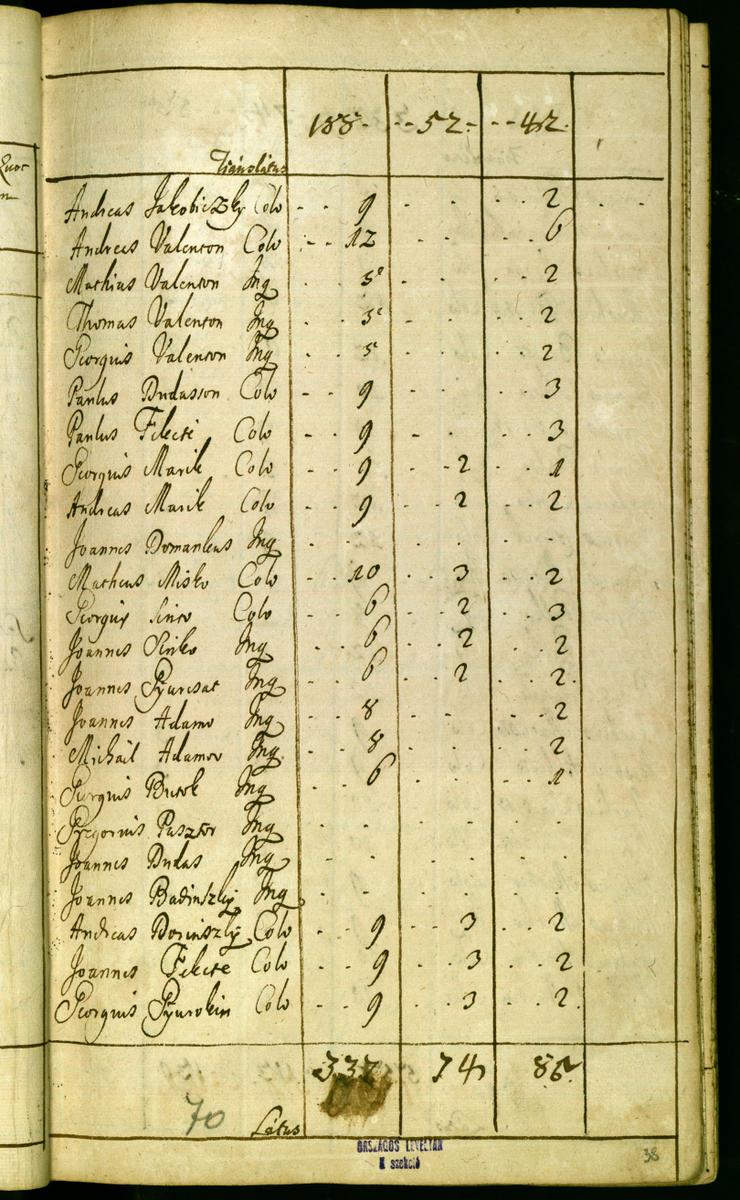 188 52 42
Translatus
Andreas Jakobiczky Colo 9 2
Andreas Valenton Colo 12 6
Mathias Valenton Inq 5 2
Thomas Valenton Inq 5 2
Georgius Valenton Inq 5 2
Paulus Dudasson Colo 9 3
Paulus Fekete Colo 9 3
Georgius Marik Colo 9 2 1
Andreas Marik Colo 9 2 2
Joannes Domankus Inq
Matheus Misko Colo 10 3 2
Georgius Sinko Colo 6 2 3
Joannes Sinko Inq 6 2 2
Joannes Gyurcsat Inq 6 2 2
Joannes Adamo Inq 8 2
Michail Adamov Inq 8 2
Georgius Butok Inq 6 1
Gregorius Pasztor Inq
Joannes Dudas Inq
Joannes Badinszky Inq
Andreas Dorinszky Colo 9 3 2
Joannes Fekete Colo 9 3 2
Georgius Gyurokin Colo 9 3 2
332 74 85
70 Latus
ORSZÁGOS LEVÉLTÁR
N szekció
38